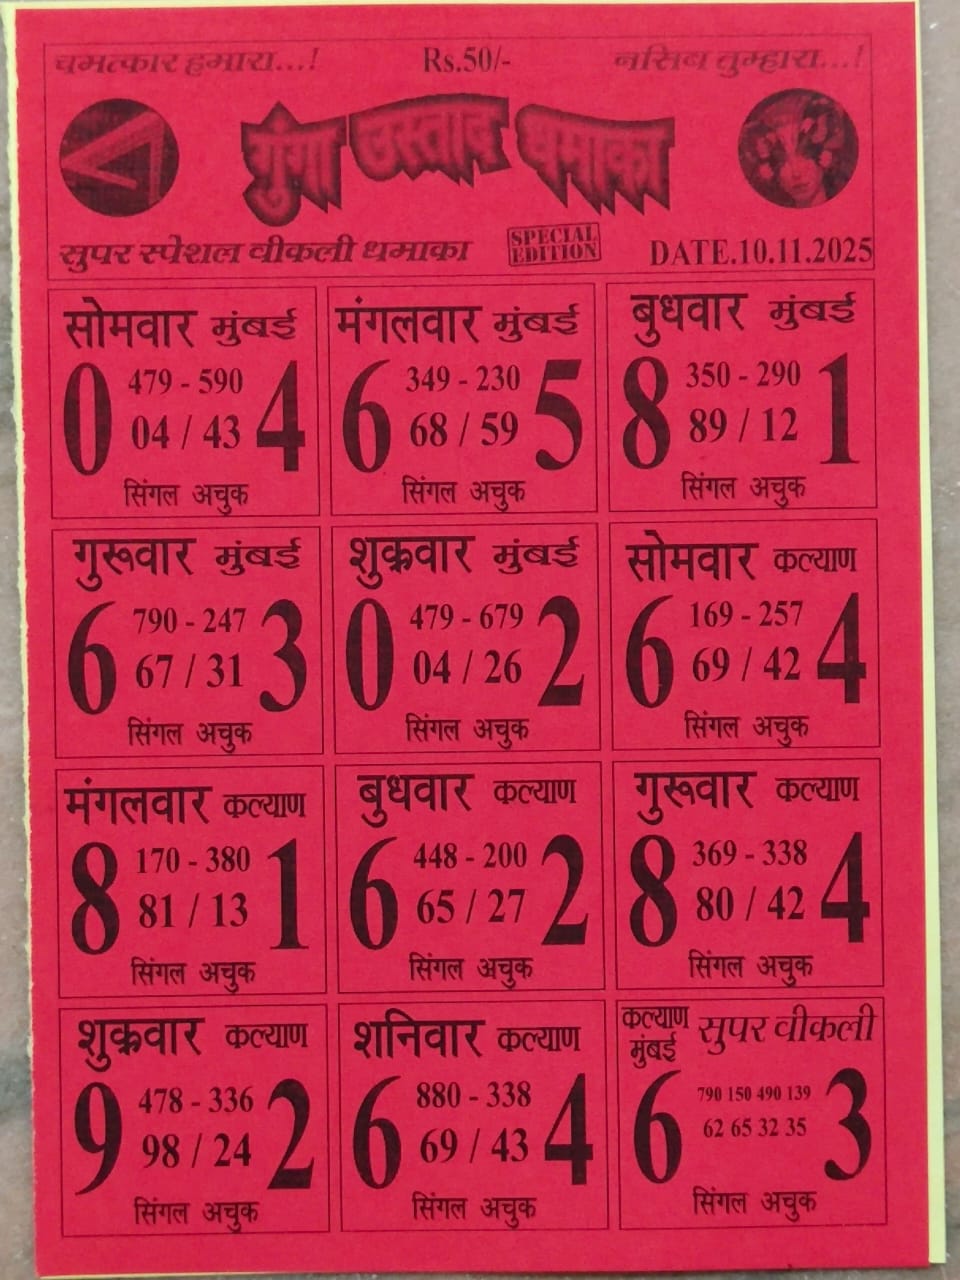 चमत्कार हमारा...! Rs.50/- नसिब तुम्हारा...!
गुंगा उस्ताद धमाका
सुपर स्पेशल वीकली धमाका SPECIAL EDITION DATE.10.11.2025
सोमवार मुंबई
0 479 - 590 4
04 / 43
सिंगल अचुक
मंगलवार मुंबई
6 349 - 230 5
68 / 59
सिंगल अचुक
बुधवार मुंबई
8 350 - 290 1
89 / 12
सिंगल अचुक
गुरूवार मुंबई
6 790 - 247 3
67 / 31
सिंगल अचुक
शुक्रवार मुंबई
0 479 - 679 2
04 / 26
सिंगल अचुक
सोमवार कल्याण
6 169 - 257 4
69 / 42
सिंगल अचुक
मंगलवार कल्याण
8 170 - 380 1
81 / 13
सिंगल अचुक
बुधवार कल्याण
6 448 - 200 2
65 / 27
सिंगल अचुक
गुरूवार कल्याण
8 369 - 338 4
80 / 42
सिंगल अचुक
शुक्रवार कल्याण
9 478 - 336 2
98 / 24
सिंगल अचुक
शनिवार कल्याण
6 880 - 338 4
69 / 43
सिंगल अचुक
कल्याण मुंबई सुपर वीकली
6 790 150 490 139 3
62 65 32 35
सिंगल अचुक